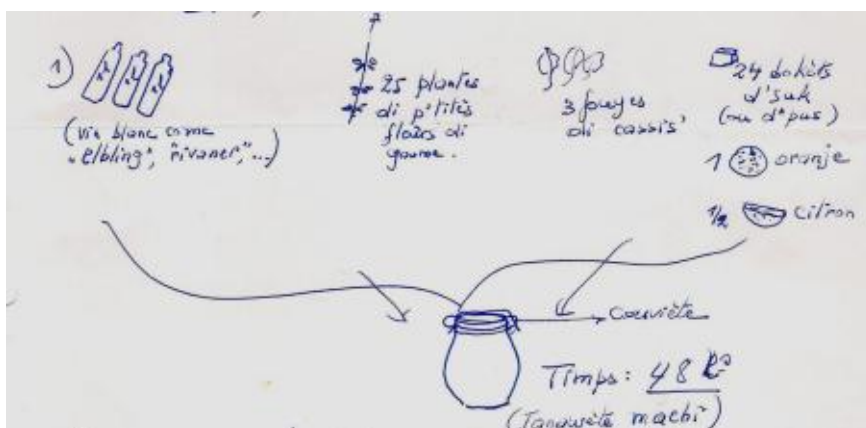 1)
(vin blanc come
"elbling", "rivaner", ...)
25 plantes
di p'titès
floûrs di
gourme.
3 fouyes
di cassis'
24 bokèts
d'suk
(ou d'pus)
1 oranje
1/2 citron
Couviète
Timps: 48
(Tanawète machî)